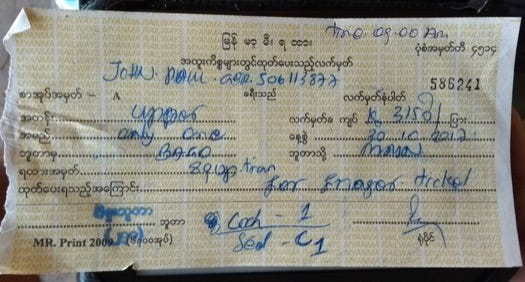 Time. 09.00 Am
မြန် မာ့ မီး ရ ထား
ပုံစံအမှတ်တိ ၄၅၁၄
အထူးကိစ္စများတွင်ထုတ်ပေးသည့်လက်မှတ်
JOHN. PAUL. GBR. 506113877
586241
စာအုပ်အမှတ် – A ခရီးသည် လက်မှတ်နံပါတ်
အတန်း လက်မှတ်ခ ကျပ် K 3150/ ပြား
အမည် only one နေ့စွဲ 30.10.2017
ဘူတာမှ BAGO ဘူတာသို့
ရထားအမှတ်
ထုတ်ပေးရသည့်အကြောင်း For
ဘူတာ Coch - 1
Sed - C1
MR. Print 2009. (၆၇၀၀အုပ်) ရုံပိုင်